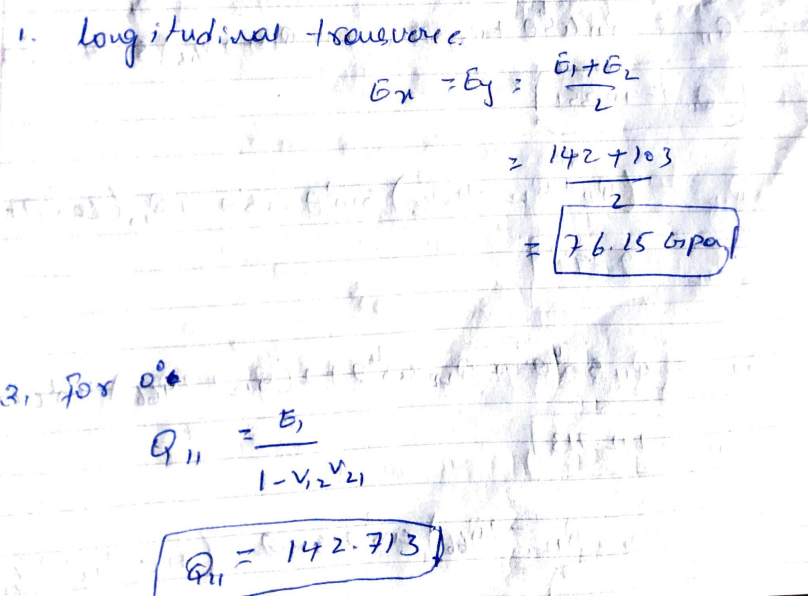 1. Longitudinal transverse
Ex = Ey = E1+E2 / 2
= 142 + 103 / 2
= 76.15 Gpa
2. For 0°
Q11 = E1 / 1-V12V21
Q11 = 142.713